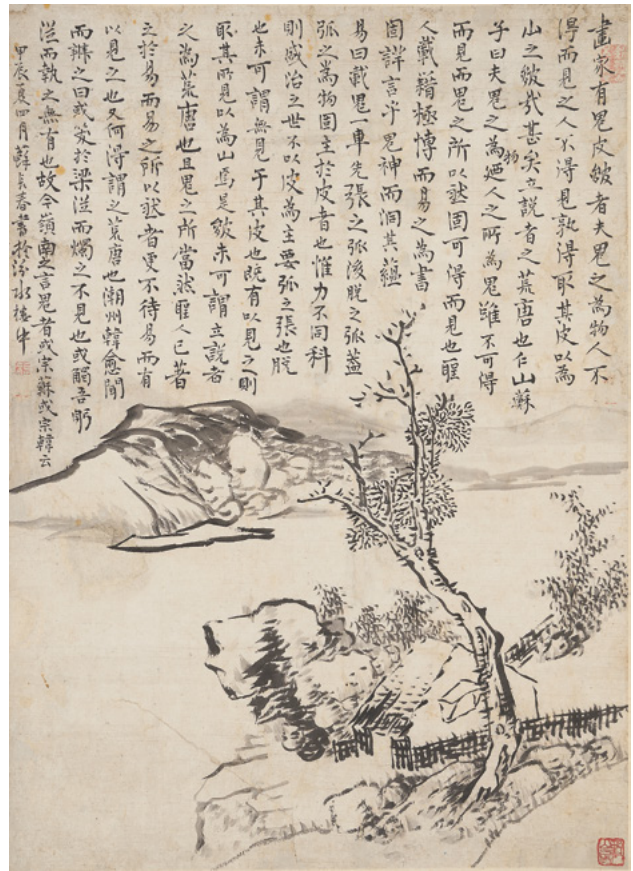 畫家有鬼皮皴者夫鬼之為物人不
得而見之人不得見孰得取其皮以為
山之皴哉甚矣立說者之荒唐也仁山蘇
子曰夫鬼之為物迺人之所為鬼誰不可得
而見而鬼之所以然固可得而見也聖
人載籍極博而易之為書
固詳言乎鬼神而洞其蘊
易曰載鬼一車先張之弧後脫之弧蓋
弧之為物固主於皮者也惟力不同科
則盛治之世不以皮為主要弧之張也脫
也未可謂無見于其皮也既有以見之則
取其所見以為山焉是皴未可謂立說者
之為荒唐也且鬼之所當然聖人已著
之於易而易之所以然者更不待易而有
以見之也又何得謂之荒唐也潮州韓愈聞
而辨之曰或嘯於梁從而燭之不見也或觸吾躬
從而執之無有也故今嶺南之言鬼者或宗蘇或宗韓云
甲辰夏四月蘇長春書於汾水樓中